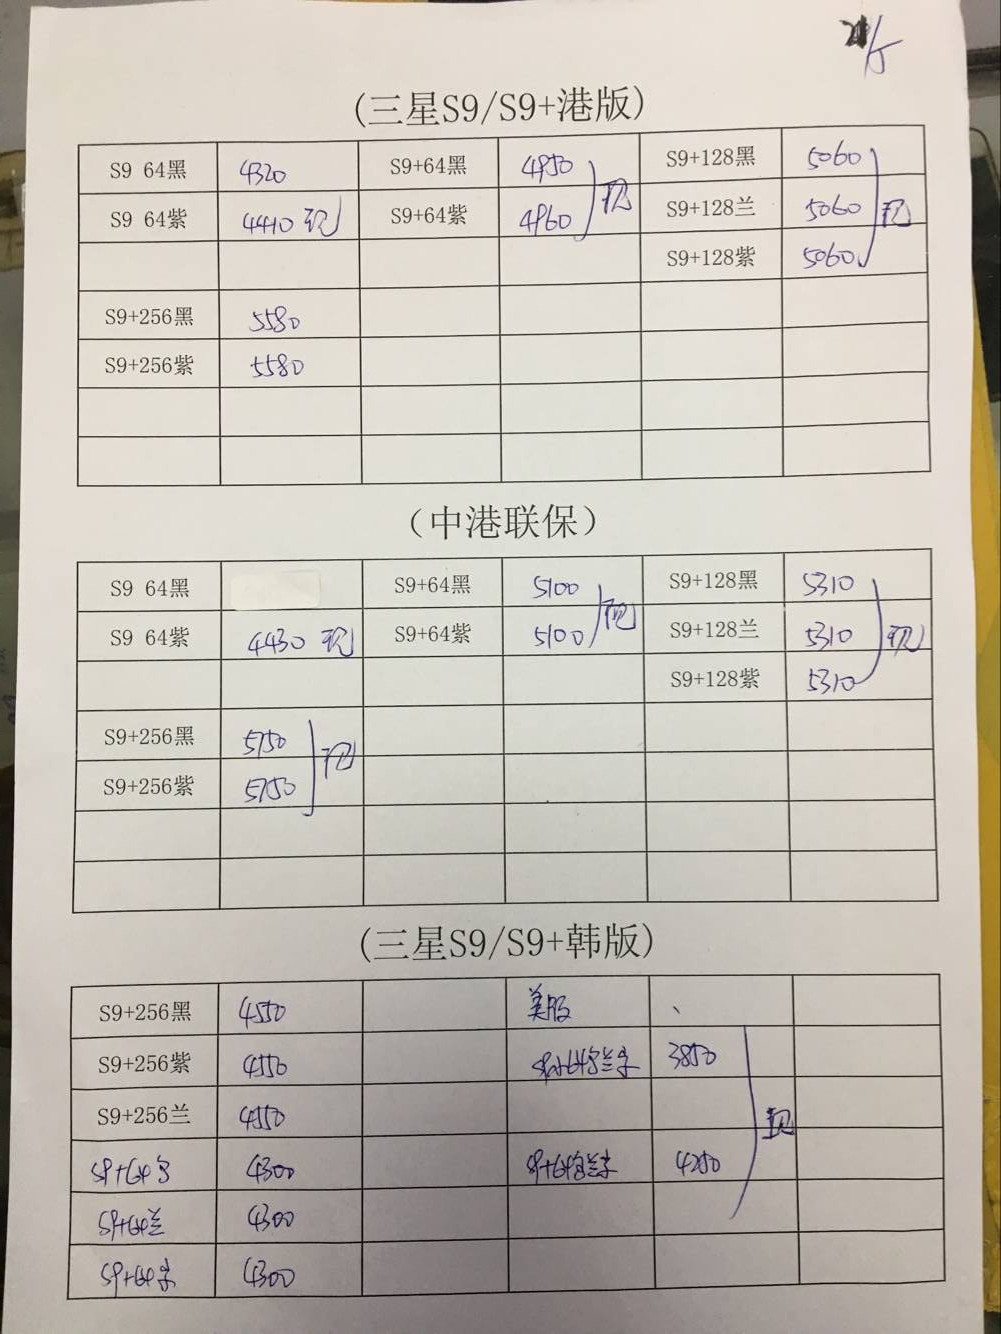 (三星S9/S9+港版)
S9 64黑 4320 S9+64黑 4950 S9+128黑 5060
S9 64紫 4410 现 S9+64紫 4960 现 S9+128兰 5060 现
S9+128紫 5060
S9+256黑 5580
S9+256紫 5580
(中港联保)
S9 64黑 S9+64黑 5100 S9+128黑 5310
S9 64紫 4430 现 S9+64紫 5100 现 S9+128兰 5310 现
S9+128紫 5310
S9+256黑 5750 现
S9+256紫 5750
(三星S9/S9+韩版)
S9+256黑 4550 美版
S9+256紫 4550 3850
S9+256兰 4550 现
S9+64 4300 S9+64 4250
S9+64兰 4300
S9+64 4300